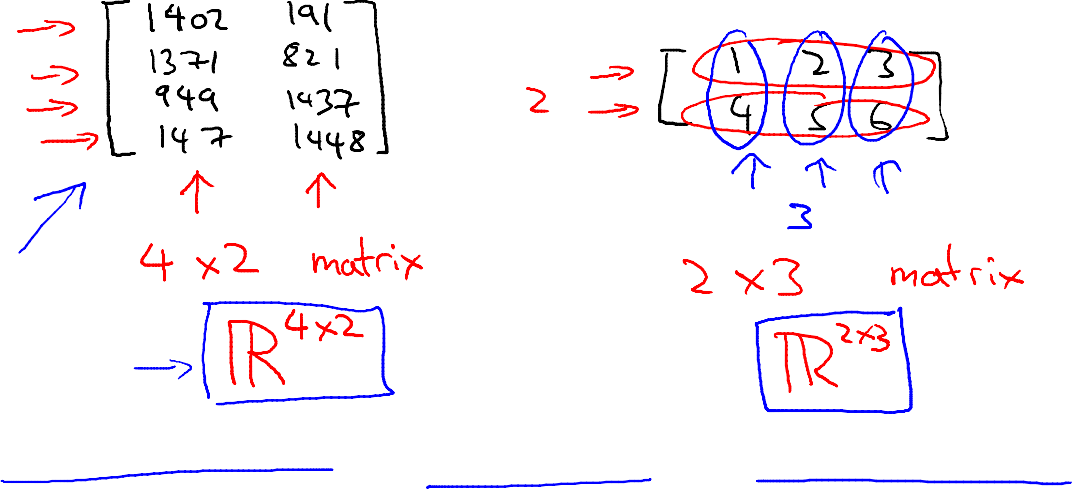 1402 191
1371 821
949 1437
147 1448
4 x 2 matrix
ℝ^{4×2}
1 2 3
2
4 5 6
3
2 x 3 matrix
ℝ^{2×3}